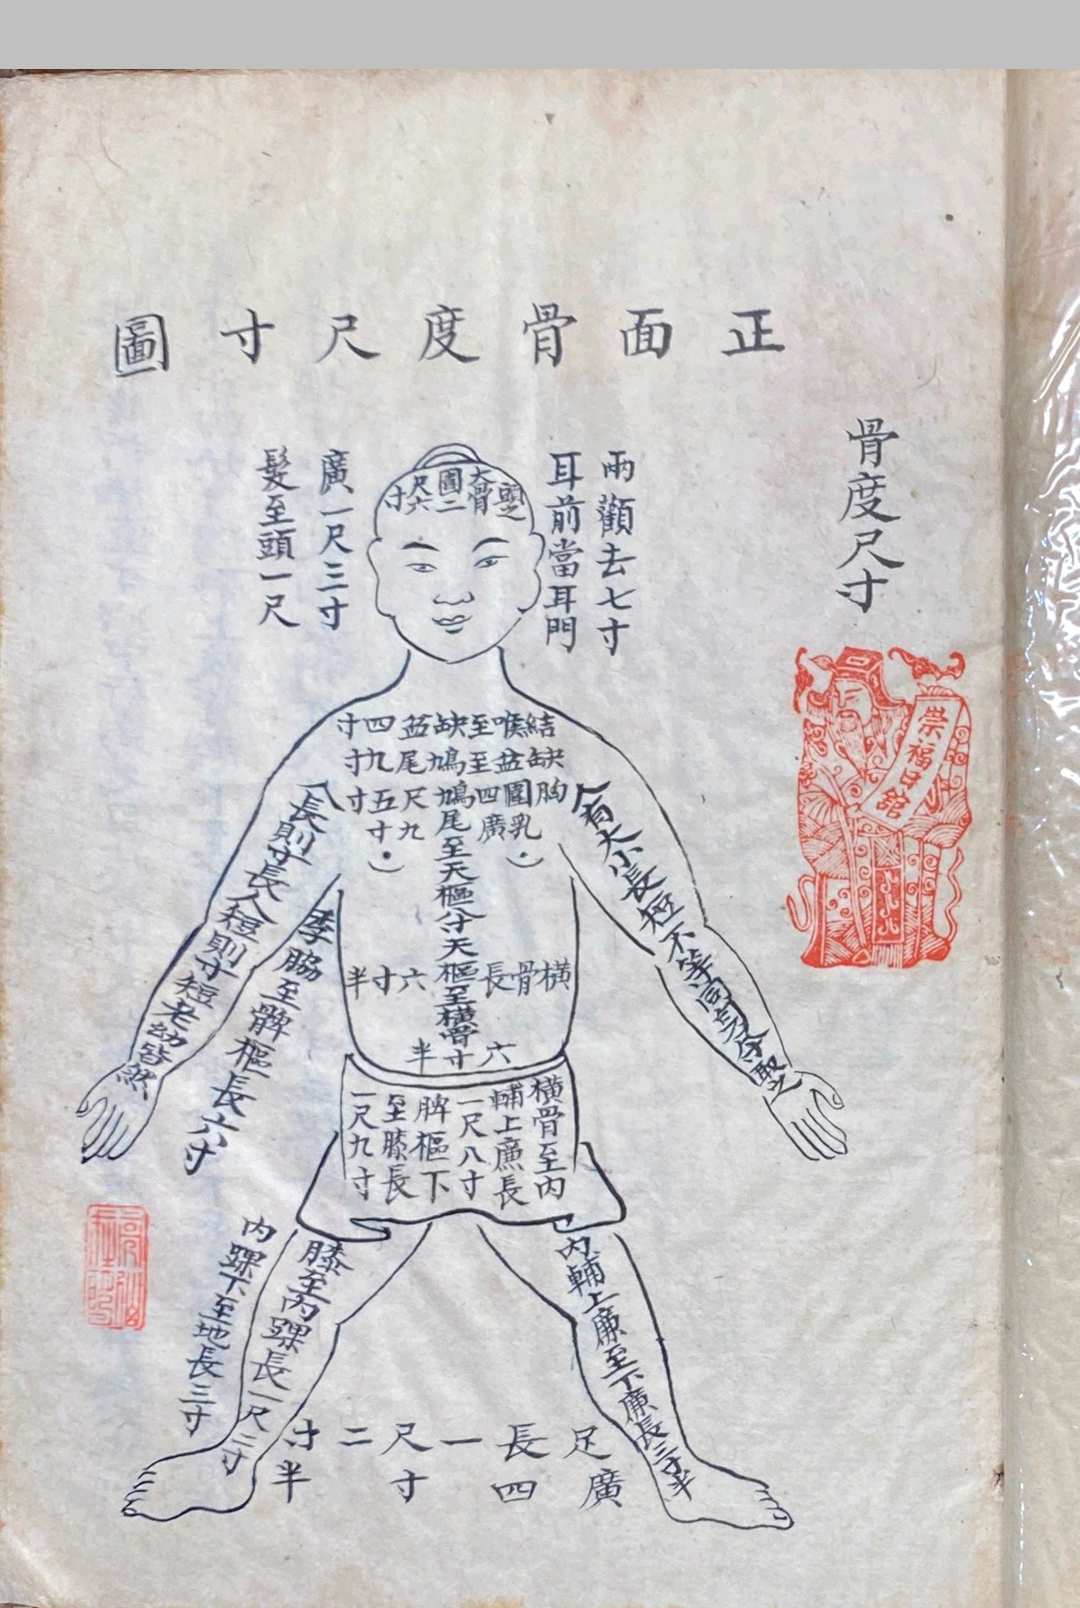 正面骨度尺寸圖
骨度尺寸
崇福日舘
兩顴去七寸
耳前當耳門
頭之
大骨
圍二
尺六
寸
廣一尺三寸
髮至頭一尺
結喉至缺盆四寸
缺盆至鳩尾九寸
胸圍四尺五寸
乳廣九寸
鳩尾至天樞八寸天樞至橫骨
六寸半
橫骨長六寸半
人有大小長短不等同身寸分取之
人長則寸長人短則寸短老幼皆然
季脇至髀樞長六寸
橫骨至內
輔上廉長
一尺八寸
脾樞下
至膝長
一尺九寸
內輔上廉至下廉長三寸半
膝至內踝長一尺二寸
內踝下至地長三寸
足長一尺二寸
廣四寸半